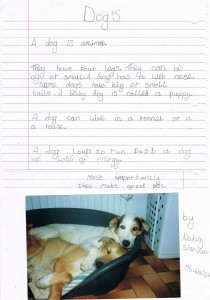 Dogs
A dog is animal
They have four legs. They can be
old or small. A dog has to wet nose.
Some dogs have big or small
tails. A baby dog is called a puppy.
A dog can live in a kennel or in
a house.
A dog Loves to run fast a dog
has lots of energy.
Most importantly
they make great pets.
by